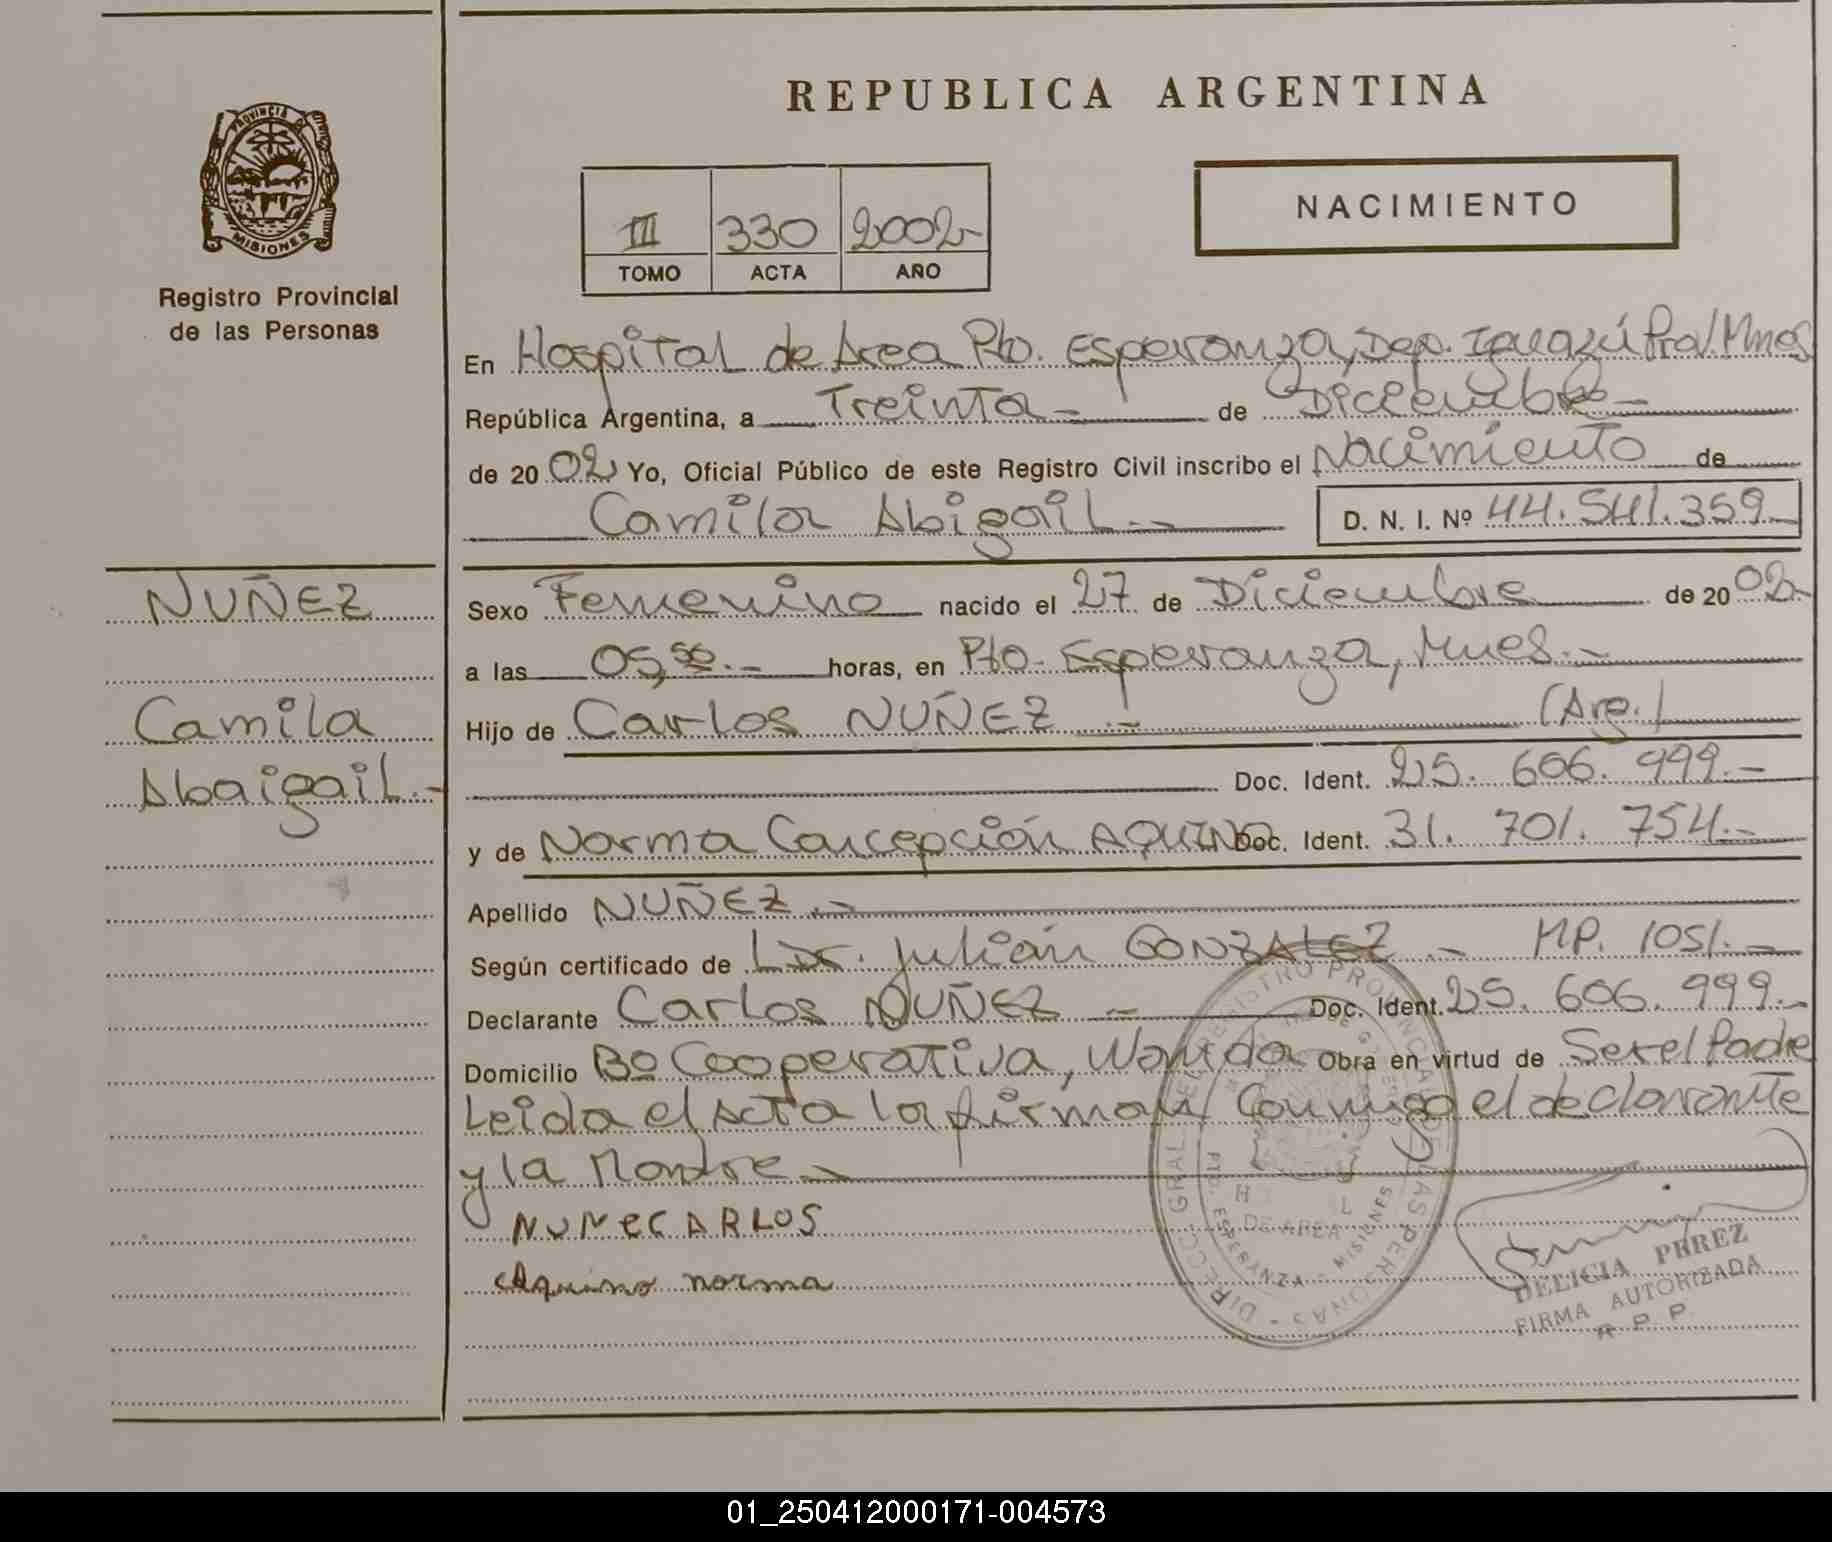 REPUBLICA ARGENTINA
PROVINCIA DE
MISIONES
Registro Provincial
de las Personas
III 330 2002
TOMO ACTA AÑO
NACIMIENTO
En Hospital de Area Pto. Esperanza, Dep. Iguazú Mnes
República Argentina, a Treinta.- de Diciembre-
de 20 02 Yo, Oficial Público de este Registro Civil inscribo el Nacimiento de
Camila Abigail.-
D. N. I. Nº 44.541.359-
NUÑEZ
Camila
Abaigail.-
Sexo Femenino nacido el 27 de Diciembre de 20 02-
a las 05,50.- horas, en Pto. Esperanza, Mnes.-
Hijo de Carlos NUÑEZ.- (Arg.)
Doc. Ident. 25. 606. 999.-
y de Norma Concepción AQUINO Doc. Ident. 31. 701. 754.-
Apellido NUÑEZ.-
Según certificado de Julián GONZALEZ - MP. 1051.-
Declarante Carlos NUÑEZ - Doc. Ident. 25. 606. 999.-
Domicilio Bº Cooperativa, Wanda Obra en virtud de Ser el Padre
Leida el Acta la firman Conmigo el declarante
y la Madre.-
NUÑEC ARLOS
Aquino norma
DIRECC. GRAL. DEL REGISTRO PROVINCIAL DE LAS PERSONAS
DE AREA
PTO. ESPERANZA - MISIONES
DELICIA PEREZ
FIRMA AUTORIZADA
R. P. P.
01_250412000171-004573